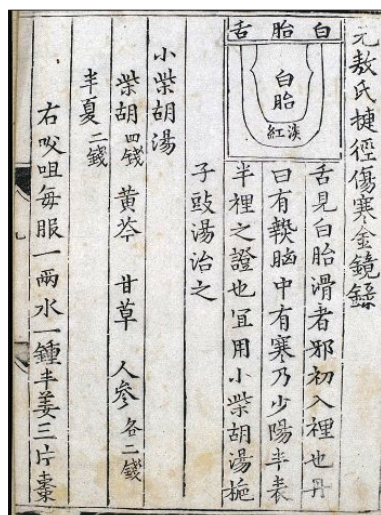 元敖氏捷徑傷寒金鏡錄
白胎舌
白胎
淡紅
舌見白胎滑者邪初入裡也丹
田有熱胸中有寒乃少陽半表
半裡之證也宜用小柴胡湯梔
子豉湯治之
小柴胡湯
柴胡四錢 黃芩 甘草 人參各二錢
半夏二錢
右㕮咀每服一兩水一鍾半姜三片棗
九